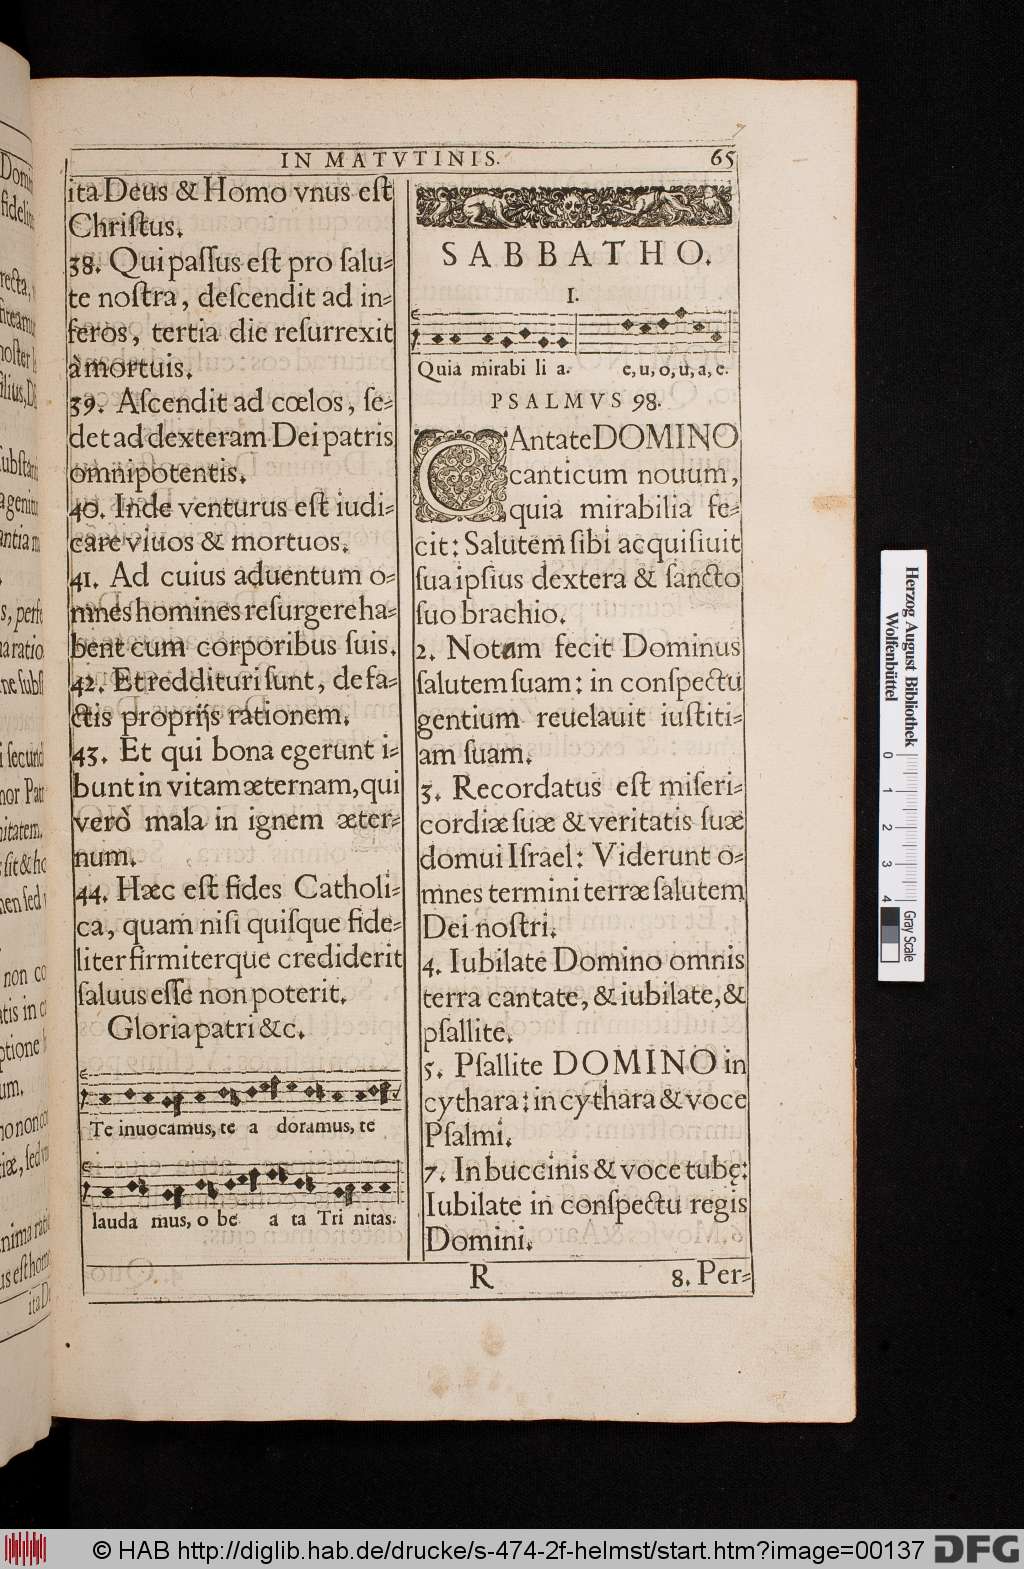 IN MATVTINIS.
65
ita Deus & Homo vnus est
Christus.
38. Qui passus est pro salu-
te nostra, descendit ad in-
feros, tertia die resurrexit
a mortuis.
39. Ascendit ad cœlos, se-
det ad dexteram Dei patris
omnipotentis.
40. Inde venturus est iudi-
care viuos & mortuos.
41. Ad cuius aduentum o-
mnes homines resurgere ha-
bent cum corporibus suis.
42. Et reddituri sunt, de fa-
ctis proprijs rationem.
43. Et qui bona egerunt i-
bunt in vitam æternam, qui
verò mala in ignem æter-
num.
44. Hæc est fides Catholi-
ca, quam nisi quisque fide-
liter firmiterque crediderit
saluus esse non poterit.
Gloria patri &c.
Te inuocamus, te a doramus, te
lauda mus, o be a ta Tri nitas.
SABBATHO.
I.
Quia mirabi li a. e, u, o, u, a, e.
PSALMVS 98.
CAntate DOMINO
canticum nouum,
quia mirabilia fe-
cit: Salutem sibi acquisiuit
sua ipsius dextera & sancto
suo brachio.
2. Notam fecit Dominus
salutem suam: in conspectu
gentium reuelauit iustiti-
am suam.
3. Recordatus est miseri-
cordiæ suæ & veritatis suæ
domui Israel: Viderunt o-
mnes termini terræ salutem
Dei nostri.
4. Iubilate Domino omnis
terra cantate, & iubilate, &
psallite.
5. Psallite DOMINO in
cythara: in cythara & voce
Psalmi.
7. In buccinis & voce tubę:
Iubilate in conspectu regis
Domini.
R
8. Per-
Herzog August Bibliothek
Wolfenbüttel
0 1 2 3 4
Gray Scale
© HAB http://diglib.hab.de/drucke/s-474-2f-helmst/start.htm?image=00137
DFG